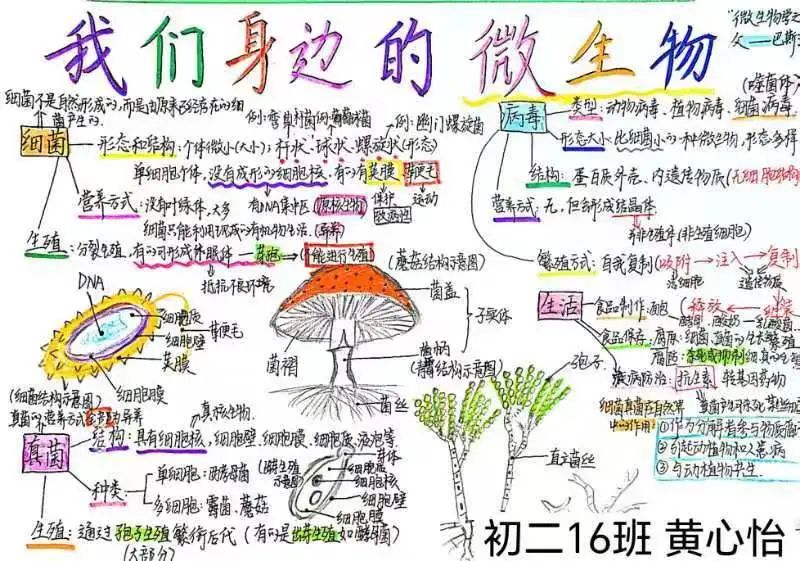 我们身边的微生物
"微生物学之
父——巴斯
细菌不是自然形成的,而是由原来已经存在的细
菌产生的.
细菌
例:
例:幽门螺旋菌
形态和结构:个体微小(大小):杆状、球状、螺旋状(形态)
单细胞个体,没有成形的细胞核,有的有荚膜
鞭毛
保护
运动
有DNA集中区(原核生物)
营养方式:没有叶绿体,大多
细菌只能利用现成的有机物生活.
(异养)
生殖:分裂生殖,有的可形成休眠体—芽孢→(不能进行生殖)
抵抗不良环境
病毒
类型:动物病毒、植物病毒、细菌病毒
形态大小:比细菌小的一种微生物,形态多样
结构:蛋白质外壳、内遗传物质(无细胞结构
营养方式:无,但会形成结晶体
(非生殖细胞)
繁殖方式:自我复制(吸附→注入→复制
活细胞
遗传物质
释放
DNA
细胞质
细胞壁
鞭毛
荚膜
细胞膜
(细菌结构示意图)
(蘑菇结构示意图)
菌盖
子实体
菌褶
菌柄
菌丝
孢子
直立菌丝
生活
食品制作:面包
食品保存:腐败:细菌、真菌的生长繁殖
防腐:杀死或抑制细菌的生
疾病防治:抗生素
转基因药物
细菌真菌在自然界
中的作用:
①作为分解者参与物质循环
②引起动植物和人患病
③与动植物共生.
真菌的营养方式
真核生物.
真菌
结构:具有细胞核、细胞壁、细胞膜、细胞质、液泡等.
种类:
单细胞:酵母菌
多细胞:霉菌、蘑菇
芽体
细胞核
细胞壁
细胞膜
生殖:通过孢子生殖繁衍后代(有的是出芽生殖如酵母菌)
(大部分)
初二16班 黄心怡